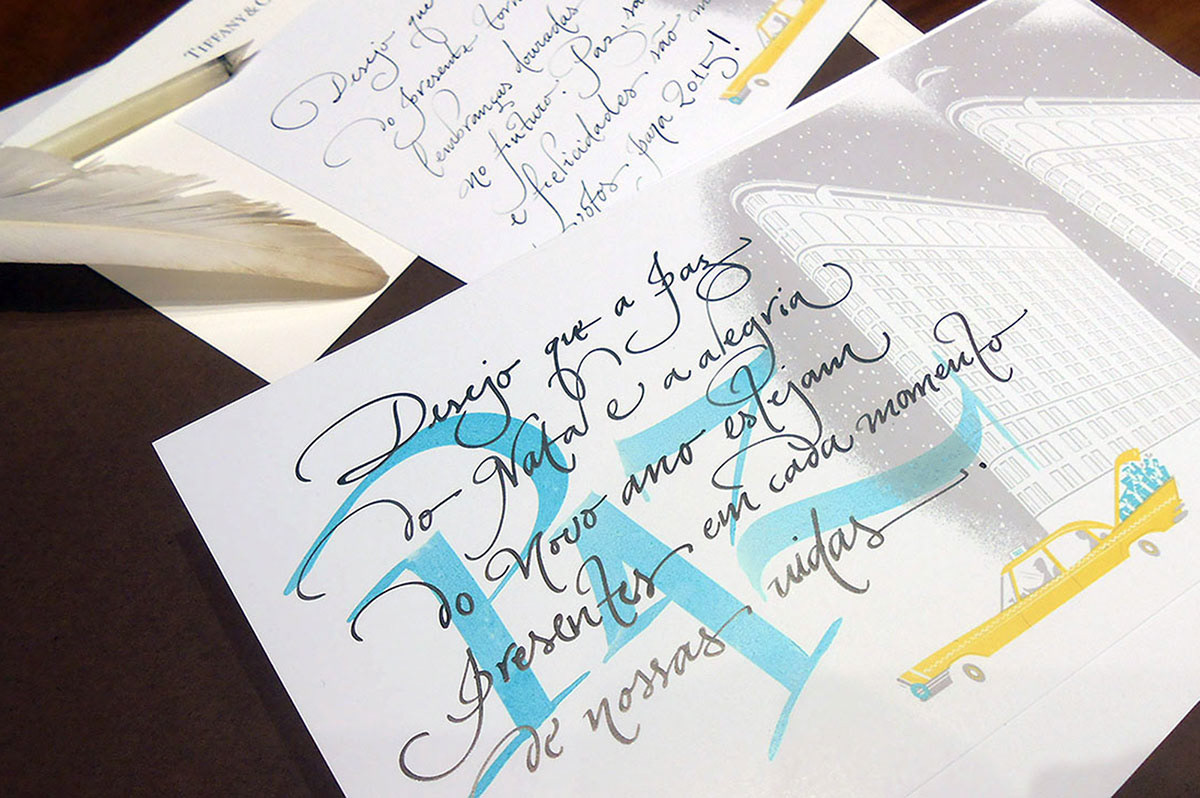 TIFFANY & C
Desejo que
do presente torn
lembranças douradas
no futuro! Paz, sa
e felicidades são m
votos para 2015!
Desejo que a Paz
do Natal e a alegria
do Novo ano estejam
Presentes em cada momento
de nossas vidas.
PAZ